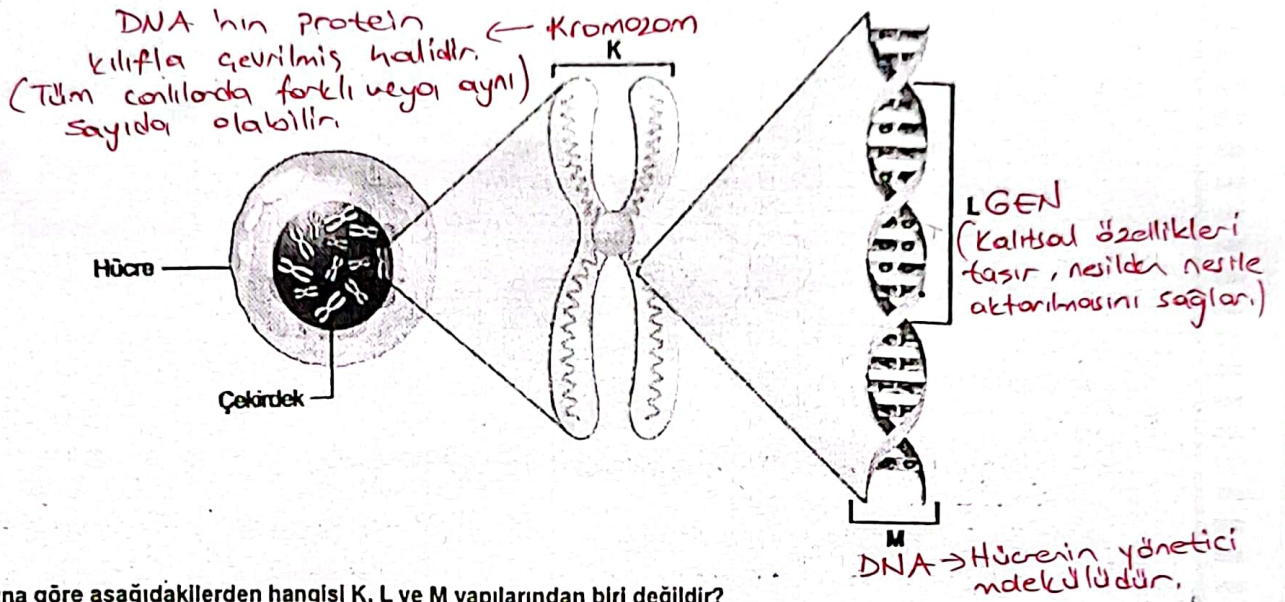 DNA 'nın protein ← Kromozom
kılıfla çevrilmiş halidir.
(Tüm canlılarda farklı veya aynı)
sayıda olabilir.
K
Hücre
Çekirdek
L GEN
(Kalıtsal özellikleri
taşır, nesilden nesile
aktarılmasını sağlar.)
M
DNA → Hücrenin yönetici
molekülüdür.
na göre aşağıdakilerden hangisi K, L ve M yapılarından biri değildir?